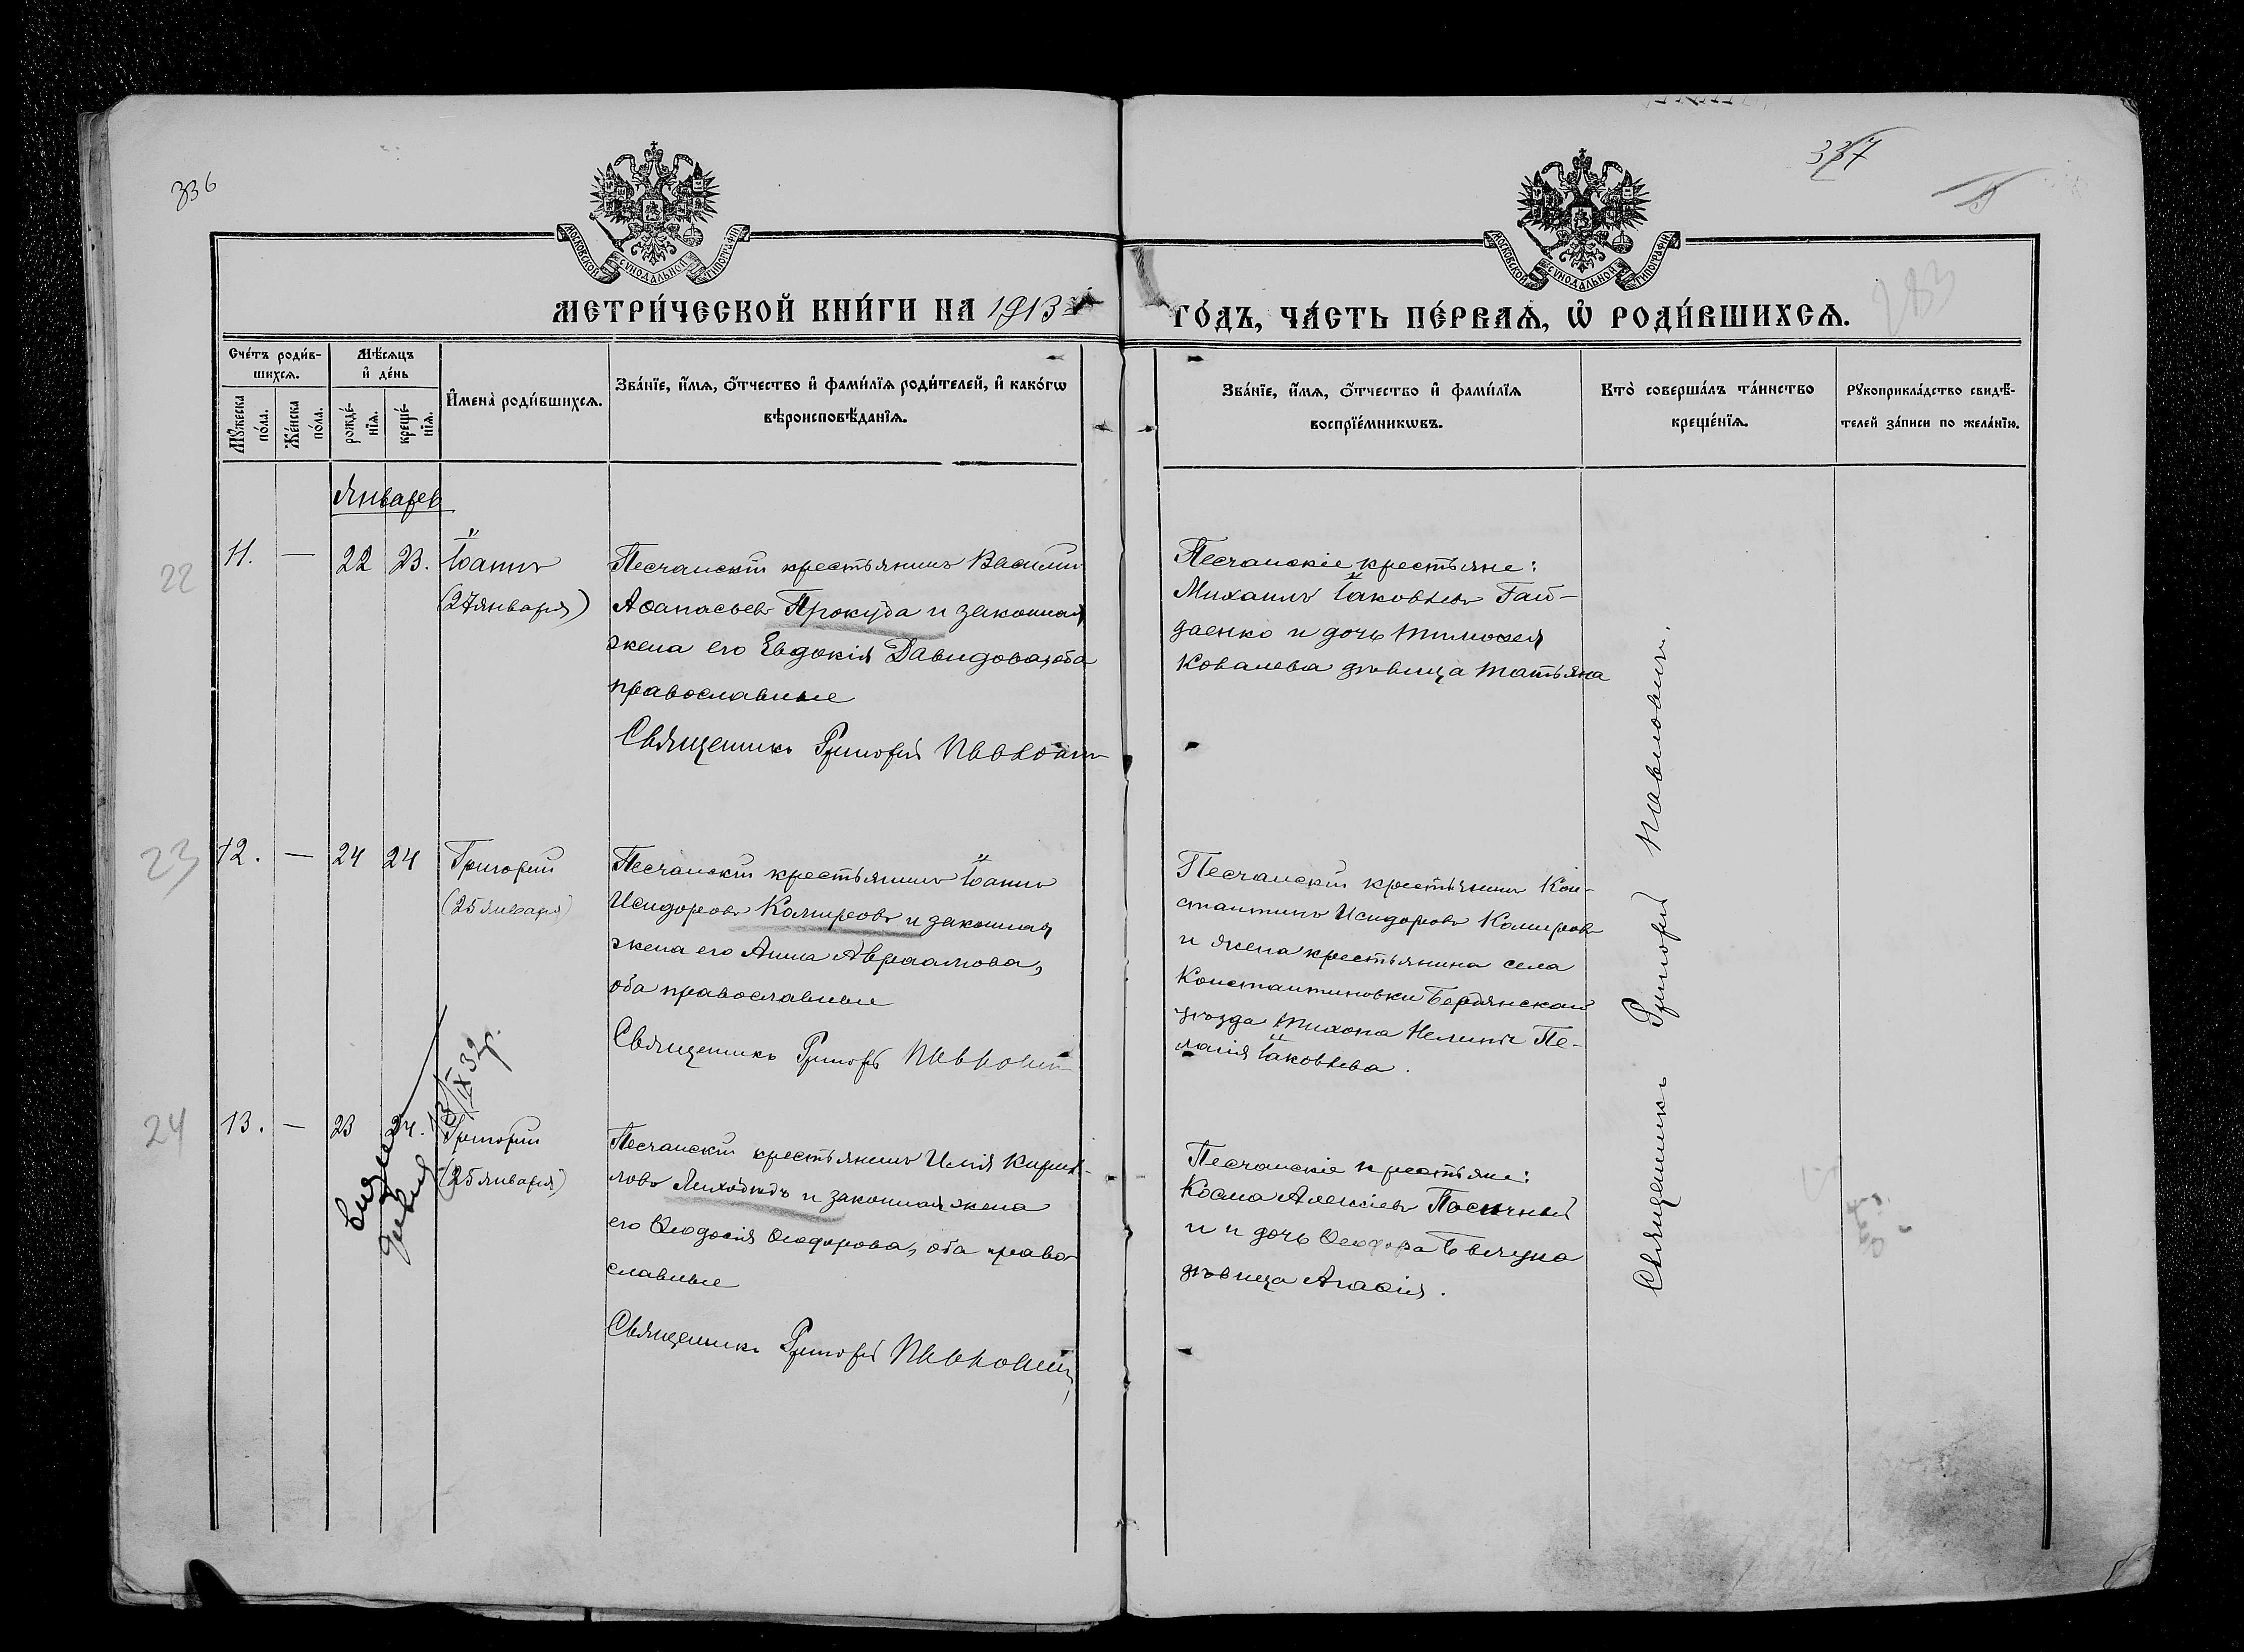 336
337
183
МОСКОВСКОЙ СѴНОДАЛЬНОЙ ТИПОГРАФІИ
МОСКОВСКОЙ СѴНОДАЛЬНОЙ ТИПОГРАФІИ
МЕТРИ́ЧЕСКОЙ КНИ́ГИ НА 1913 ГО́ДЪ, ЧА́СТЬ ПЕ́РВАѦ, Ѽ РОДИ́ВШИХСѦ.
Сче́тъ роди́в-
шихсѧ.
Мꙋ́жеска по́ла.
Же́нска по́ла.
Мѣ́сѧцъ и҆ де́нь
рожде́-
нїѧ.
креще́-
нїѧ.
И҆мена̀ роди́вшихсѧ.
Зва́нїе, и҆́мѧ, ѻ҆́тчество и҆ фами́лїѧ роди́телей, и҆ како́гѡ
вѣроисповѣ́данїѧ.
Зва́нїе, и҆́мѧ, ѻ҆́тчество и҆ фами́лїѧ
воспрїе́мникѡвъ.
Кто̀ соверша́лъ та́инство
креще́нїѧ.
Рꙋкоприкла́дство свидѣ́-
телей за́писи по жела́нїю.
Январь
22
11. — 22 23. Іоаннъ
(27 января)
Песчанскій крестьянинъ Василій
Аѳанасьевъ Прокуда и законная
жена его Евдокія Давидова, оба
православные
Священникъ Григорій Павловичъ
Песчанскіе крестьяне:
Михаилъ Іаковлевъ Гай-
даенко и дочь Тимоѳея
Ковалева дѣвица Татьяна
23
12. — 24 24 Григорій
(25 января)
Песчанскій крестьянинъ Іоаннъ
Исидоровъ Комировъ и законная
жена его Анна Авраамова,
оба православные
Священникъ Григорій Павловичъ
Песчанскій крестьянинъ Кон-
стантинъ Исидоровъ Комировъ
и жена крестьянина села
Константиновки Бердянскаго
уѣзда Тихона Пе-
лагія Іаковлева.
24
13. — 23 24. Григорій
(25 января)
13/IX 32 р.
Песчанскій крестьянинъ Илія Кирил-
ловъ Лиходѣдъ и законная жена
его Ѳеодосія Ѳеодорова, оба право-
славные
Священникъ Григорій Павловичъ
Песчанскіе крестьяне:
Косма Алексіевъ Пасичный
и и дочь Ѳеодора
дѣвица Агаѳія.
Священникъ Григорій Павловичъ.